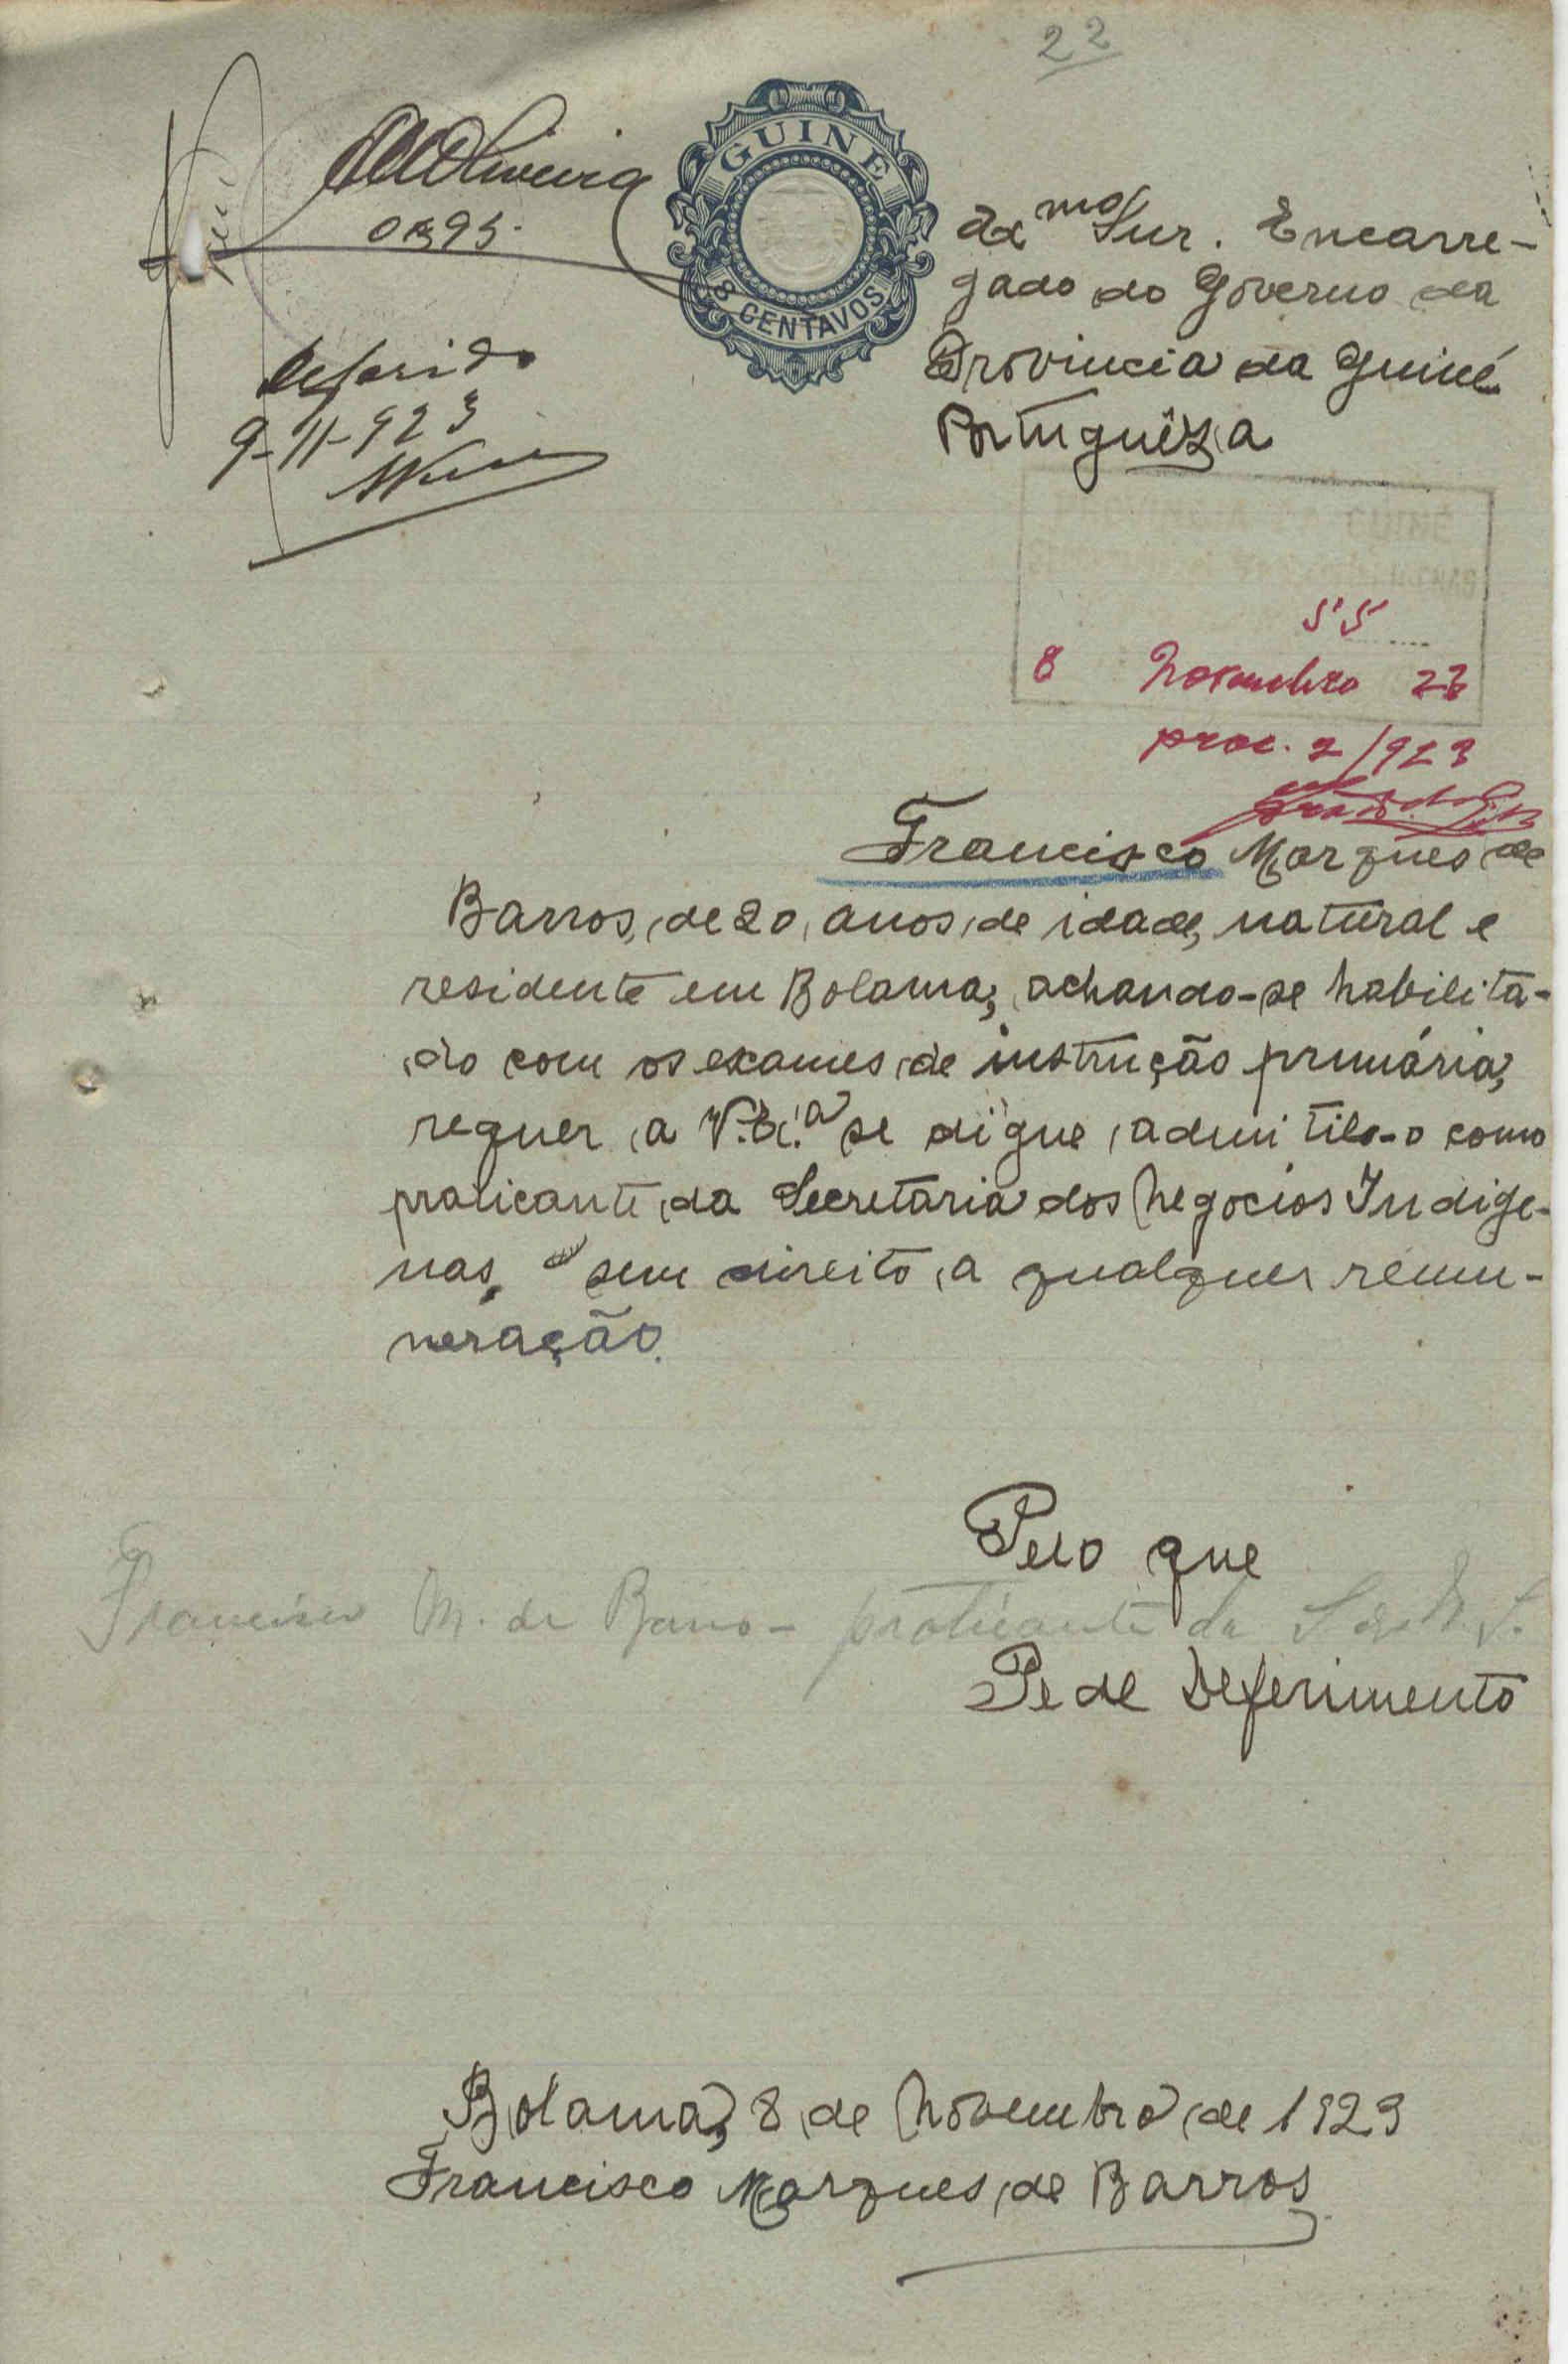 22
GUINE
8 CENTAVOS
Oliveira
Exmo Snr. Encarre-
gado do Governo da
Provincia da Guiné
Portuguêza
Deferido
9-11-923
55
8 Novembro 23
proc. 2/923
Francisco Marques de
Barros, de 20 anos de idade, natural e
residente em Bolama, achando-se habilita-
do com os exames de instrução primária,
requer a V. Ex.ª se digne admitilo-o como
praticante da Secretaria dos Negocios Indige-
nas, sem direito a qualquer remu-
neração.
Pelo que
Francisco M. de Barros - praticante da S. dos N. I.
Pede Deferimento
Bolama, 8 de Novembro de 1923
Francisco Marques de Barros